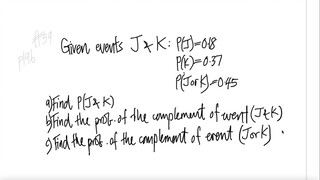 #39
p#46
Given events J & K: P(J)=0.18
P(K)=0.37
P(JorK)=0.45
a) Find P(J & K)
b) Find the prob. of the complement of event (J & K)
c) Find the prob. of the complement of event (JorK).